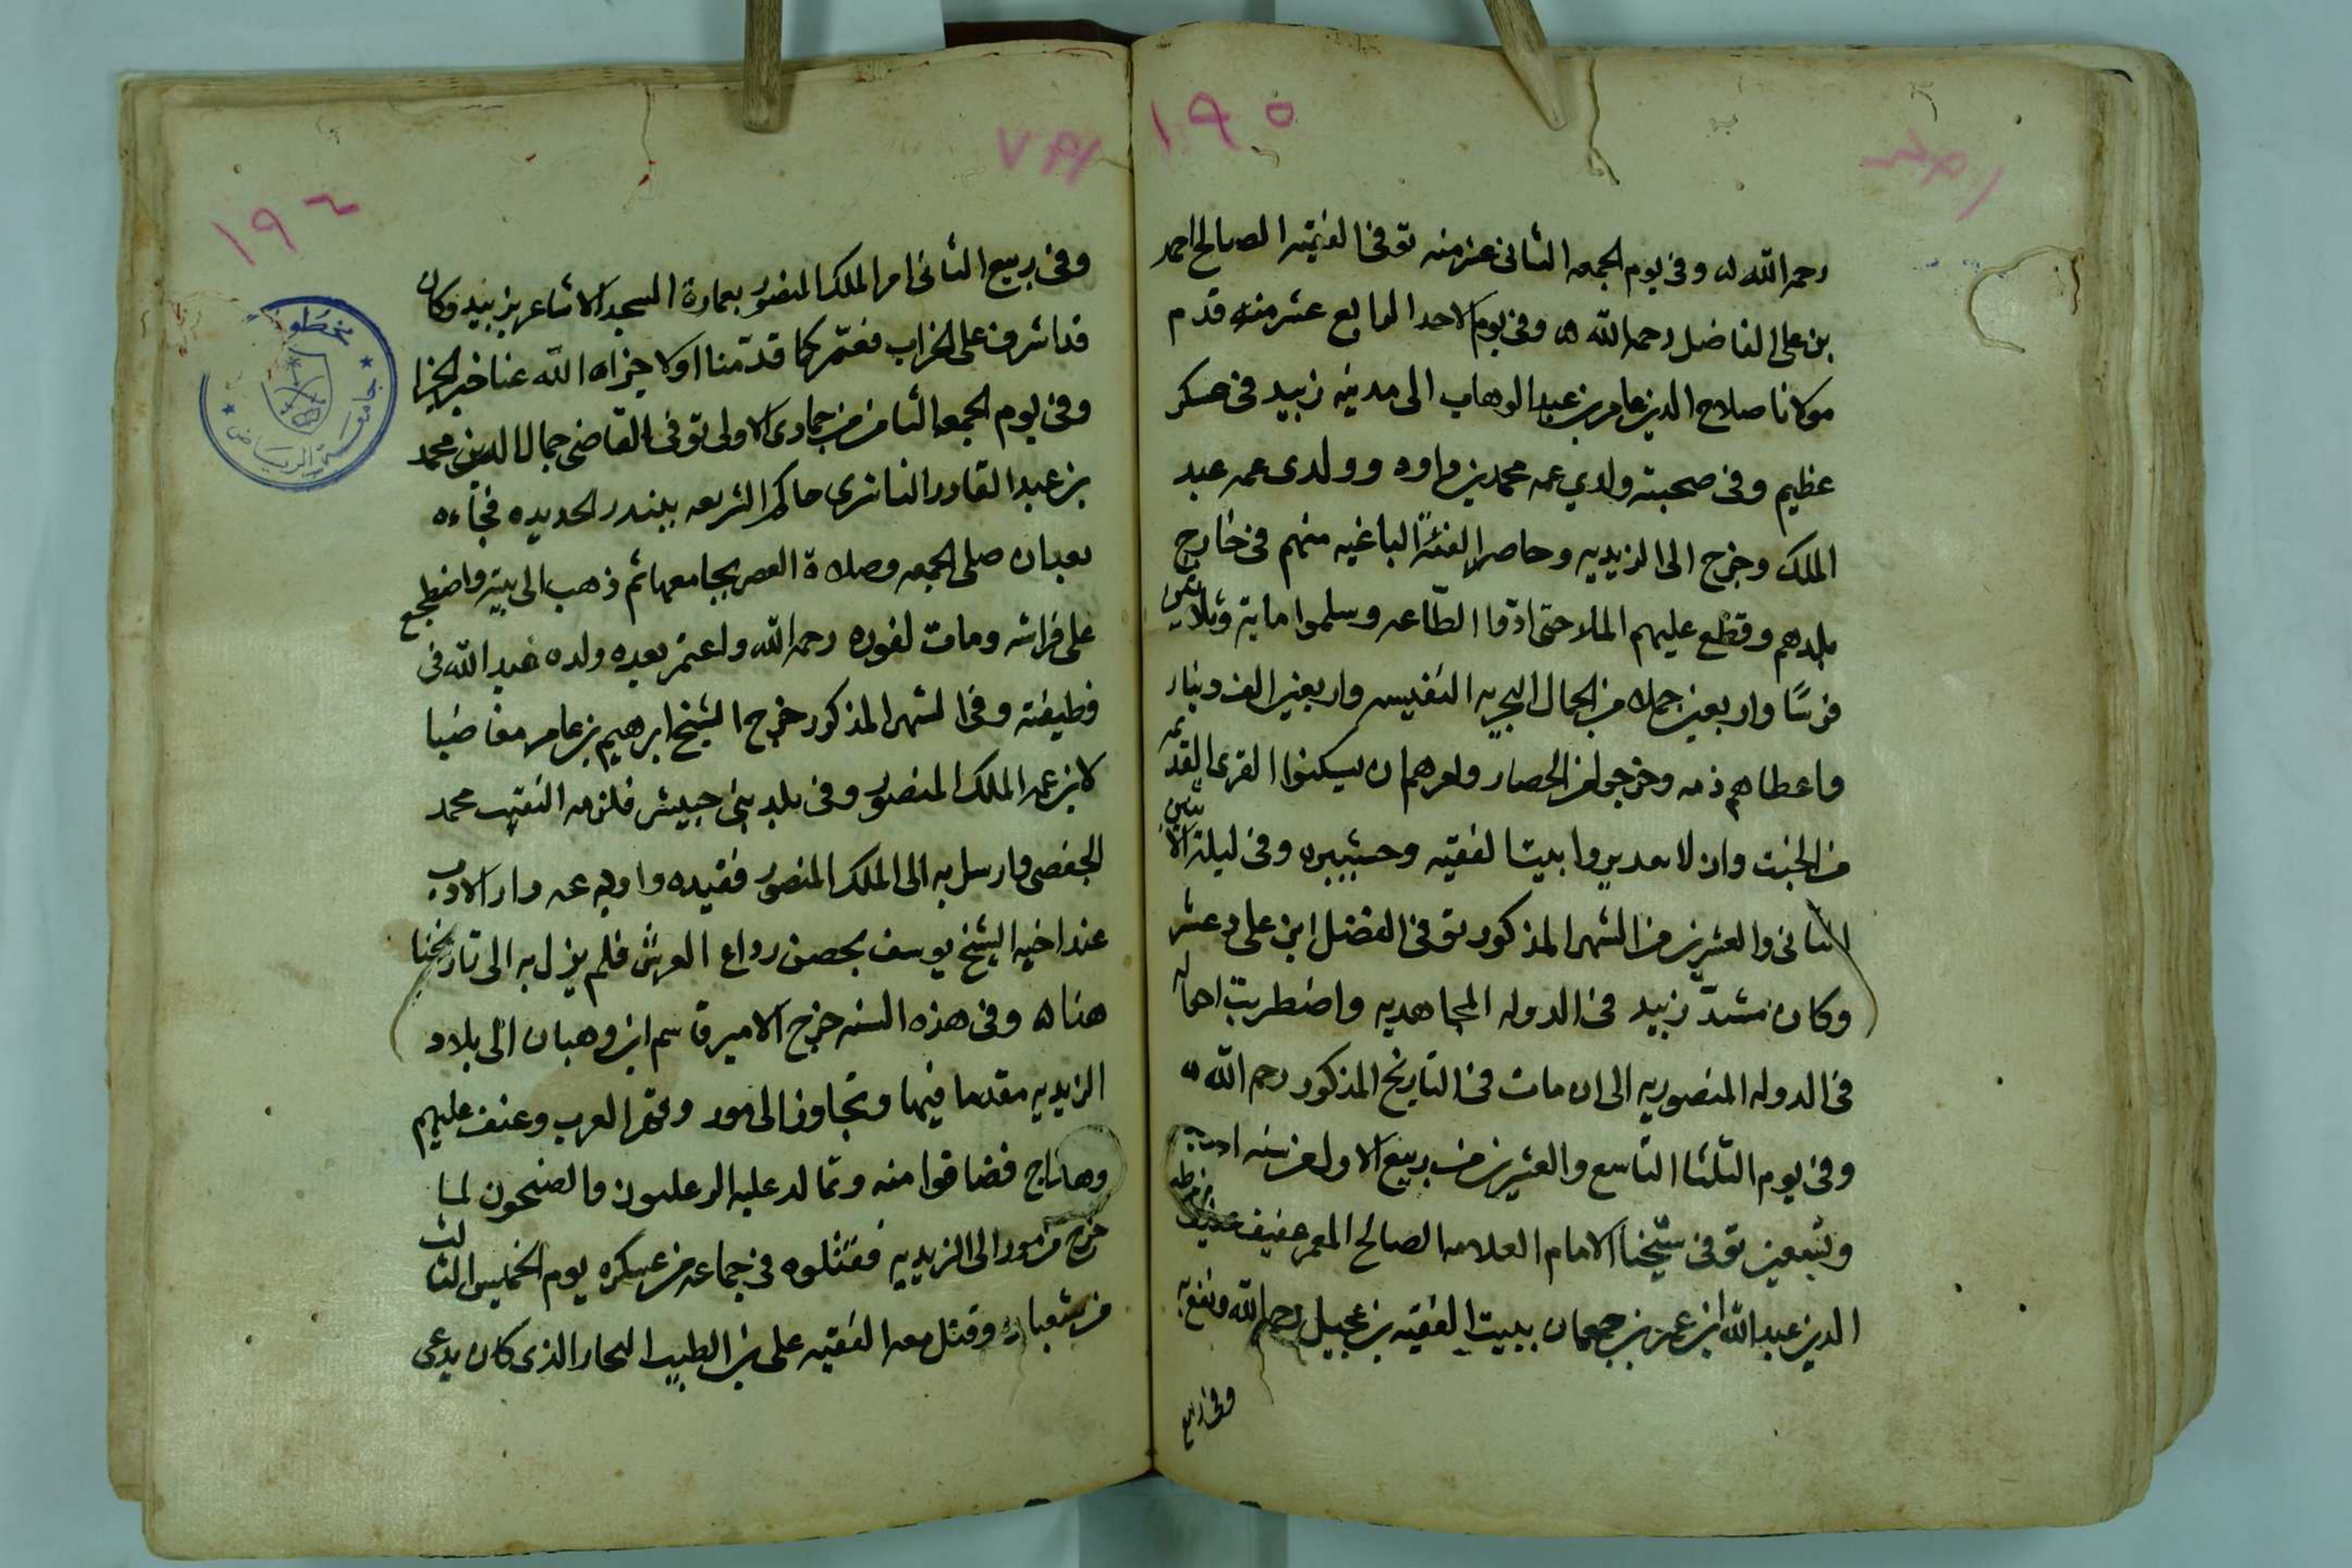 ١٩٥
رحمه الله ه وفى يوم الجمعه الثانى عشر منه توفى الفقيه الصالح احمد
بن على الفاضل رحمه الله ه وفى يوم الاحد الرابع عشر منه قدم
مولانا صلاح الدين عامر بن عبد الوهاب الى مدينه زبيد فى عسكر
عظيم وفى صحبته ولدي عمه محمد بن داود وولدى عمه عبد
الملك وخرج الى الزيديه وحاصر الفئة الباغيه منهم فى خارج
بلدهم وقطع عليهم الملا حتى ادوا الطاعه وسلموا ماية وثلاثين
فرسًا واربعين جملا من الجمال البجريه النفيس واربعين الف دينار
واعطاهم ذمه وخرجوا من الحصار وامرهم ان يسكنوا القرى القديمه
من الخبت وان لا يديروا بيتا لفقيه وحشيبره وفى ليلة الاثنين
الثانى والعشرين من الشهر المذكور توفى الفضل ابن على دعشر
وكان مشدّ زبيد فى الدوله المجاهديه واضطربت احماله
فى الدوله المنصوريه الى ان مات فى التاريخ المذكور رحمه الله ه
وفى يوم الثلثا التاسع والعشرين من ربيع الاول من سنه احدى
وتسعين توفى شيخنا الامام العلامه الصالح المعمر عفيف
الدين عبد الله ابن عمر بن جعمان ببيت الفقيه بن عجيل رحمه الله ونفع به
وفى ربيع
١٩٦
وفى ربيع الثانى امر الملك المنصور بعمارة المسجد الاشاعر بزبيد وكان
قد اشرف على الخراب فعمّر كما قدّمنا اولا جزاه الله عنا خير الجزا
وفى يوم الجمعه الثامن من جمادى الاولى توفى القاضى جمال الدين محمد
بن عبد القادر الناشرى حاكم الشريعه ببندر الحديده فجاءه
بعد ان صلى الجمعه وصلاة العصر بجامعها ثم ذهب الى بيته واضطجع
على فراشه ومات لفوره رحمه الله بعده ولده عبد الله فى
وظيفته وفى الشهر المذكور خرج الشيخ ابرهيم بن عامر مغاضبا
لابن عمه الملك المنصور وفى بلد بنى حبيش فلزمه النقيب محمد
الجفصى وارسل به الى الملك المنصور فقيده واودعه دار الادب
عند اخيه الشيخ يوسف بحصن رداع العرش فلم يزل به الى تاريخنا
هذا ه وفى هذه السنه خرج الامير قاسم ابن وهبان الى بلاد
الزيديه مقدما فيها وتجاوز الى مور وقهر العرب وعنف عليهم
وهاناج فضاقوا منه وتمالد عليه الرعليون والصنحون لما
خرج من مور الى الزيديه فقتلوه فى جماعه من عسكره يوم الخميس الثالث
من شعبان وقتل معه الفقيه على بن الطيب النجار الذى كان يدعى
مخطوطات
جامعة الرياض